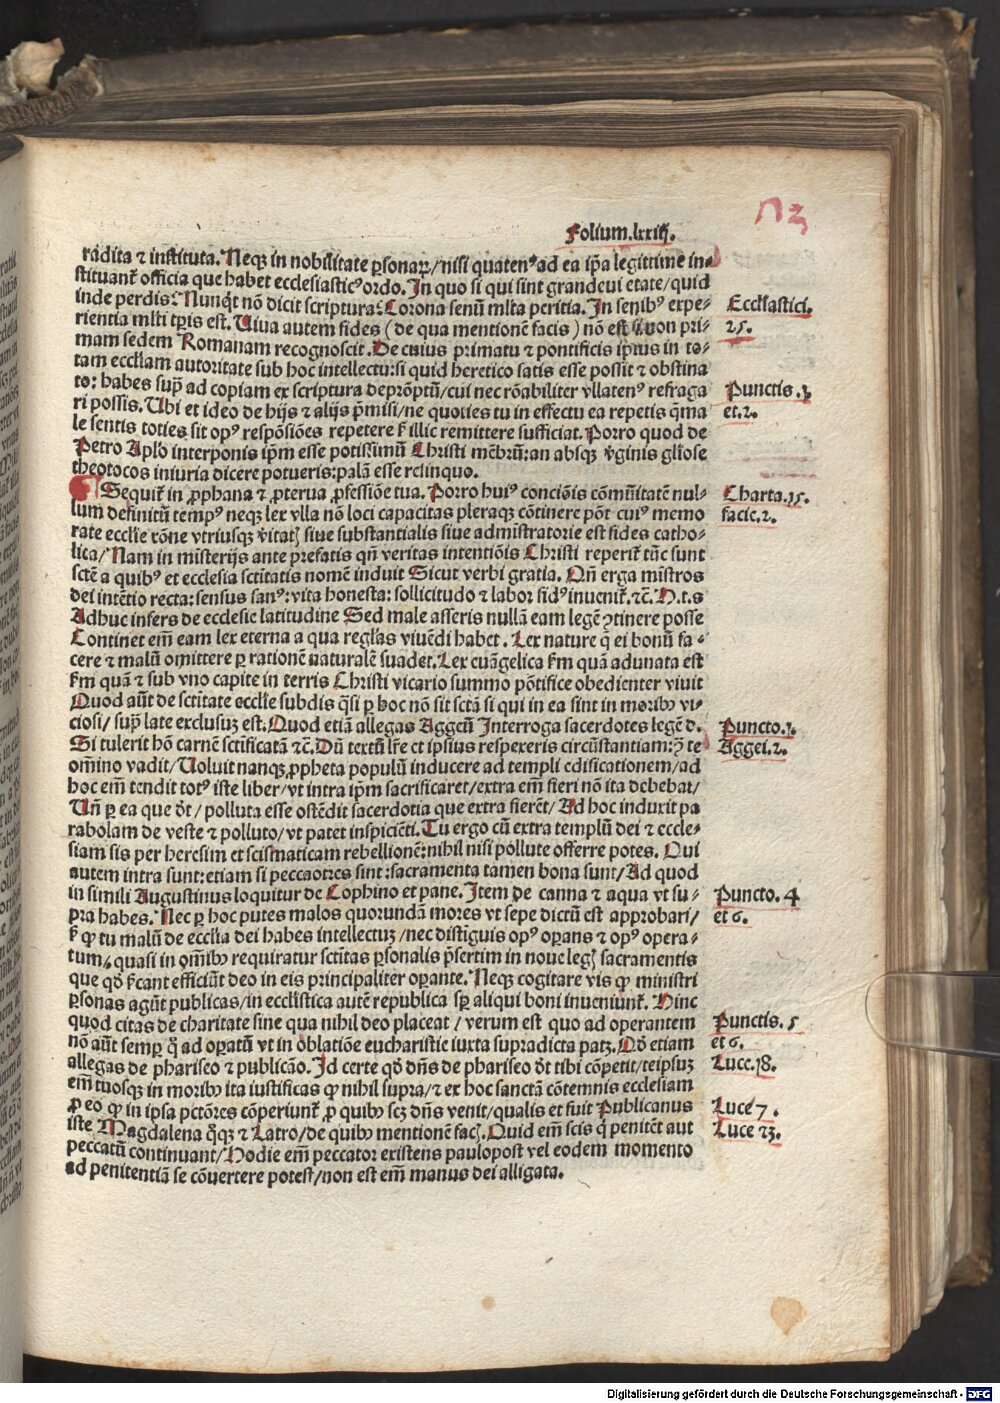 Folium.lxxiij.
radita ⁊ instituta. Neqꝫ in nobilitate ꝑsonaꝝ/nisi quatenꝰ ad ea ip̄a legittime in⸗
stituant᷑ officia que habet ecclesiasticꝰ ordo. In quo si qui sint grandeui etate/quid
inde perdis? Nunq̄t nō dicit scriptura? Corona senū ml̄ta peritia. In senibꝰ expe⸗
Eccl̄astici.
rientia ml̄ti tp̄is est. Uiua autem fides (de qua mentionē facis) nō est quon pri⸗
25.
mam sedem Romanam recognoscit. De cuius primatu ⁊ pontificis ip̄ius in to⸗
tam eccl̄iam autoritate sub hoc intellectu: si quid heretico satis esse possit ⁊ obstina
to: habes sup̄ ad copiam ex scriptura deprōptū/cui nec rōabiliter vllatenꝰ refraga
Punctis.
ri possis. Ubi et ideo de hijs ⁊ alijs p̄misi/ne quoties tu in effectu ea repetis q̄ma
et. 2.
le sentis toties sit opꝰ respōsiōes repetere s̄ illic remittere sufficiat. Porro quod de
Petro Apl̄o interponis ip̄m esse potissimū Christi mēbrū: an absqꝫ v̄ginis gl̄iose
theotocos iniuria dicere potueris: palā esse relinquo.
Sequit᷑ in ꝓphana ⁊ ꝓterua ꝓfessiōe tua. Porro huiꝰ conciōis cōmūitatē nul⸗
Charta.15.
lum definitū tempꝰ neqꝫ lex vlla nō loci capacitas pleraqꝫ cōtinere pōt cuiꝰ memo
facie.2.
rate eccl̄ie rōne vtriusqꝫ v̄itatꝭ siue substantialis siue admīstratorie est fides catho⸗
lica/ Nam in mīsterijs ante prefatis qn̄ veritas intentiōis Christi reperit᷑ tūc sunt
sctē a quibꝰ et ecclesia sctītatis nomē induit Sicut verbi gratia. Qn̄ erga mīstros
dei intētio recta: sensus sanꝰ: vita honesta: sollicitudo ⁊ labor fidꝰ inuenit᷑. ⁊c̄. H.t.s
Adhuc infers de ecclesie latitudine Sed male asseris nullā eam legē ꝯtinere posse
Continet em̄ eam lex eterna a qua regl̄as viuēdi habet. Lex nature q̄ ei bonū fa⸗
cere ⁊ malū omittere ꝑ rationē naturalē suadet. Lex euāgelica s̄m quā adunata est
s̄m quā ⁊ sub vno capite in terris Christi vicario summo pōtifice obedienter viuit
Quod aūt de sctītate eccl̄ie subdis q̄si ꝑ hoc nō sit sctā si qui in ea sint in moribꝰ vi⸗
ciosi/ sup̄ late exclusuꝫ est. Quod etiā allegas Aggeū Interroga sacerdotes legē d.
Puncto.
Si tulerit hō carnē sctīficatā ⁊c̄. Dū textū lr̄e et ipsius respexeris circūstantiam: ꝯ̄ te
Aggei.2.
om̄ino vadit/ Uoluit nanqꝫ ꝓpheta populū inducere ad templi edificationem/ad
hoc em̄ tendit totꝰ iste liber/ vt intra ip̄m sacrificaret/extra em̄ fieri nō ita debebat/
Un̄ ꝑ ea que dr̄t/ polluta esse ostēdit sacerdotia que extra fierēt/ Ad hoc induxit pa
rabolam de veste ⁊ polluto/ vt patet inspiciēti. Tu ergo cū extra templū dei ⁊ eccle⸗
siam sis per heresim et scismaticam rebellionē: nihil nisi pollute offerre potes. Qui
autem intra sunt: etiam si peccatores sint: sacramenta tamen bona sunt/ Ad quod
in simili Augustinus loquitur de Cophino et pane. Item de canna ⁊ aqua vt su⸗
Puncto. 4
pra habes. Nec ꝑ hoc putes malos quorundā mores vt sepe dictū est approbari/
et 6.
s̄ ꝙ tu malū de eccl̄ia dei habes intellectuꝫ/nec distīguis opꝰ oꝑans ⁊ opꝰ opera⸗
tum, quasi in om̄ibꝰ requiratur sctītas ꝑsonalis p̄sertim in noue legꝭ sacramentis
que qd̄ s̄cant efficiūt deo in eis principaliter oꝑante. Neqꝫ cogitare vis ꝙ ministri
ꝑsonas agūt publicas/in eccl̄istica autē republica sꝑ aliqui boni inueniunt᷑. Hinc
quod citas de charitate sine qua nihil deo placeat/ verum est quo ad operantem
Punctis. 5
nō aūt semꝑ q̄ ad oꝑatū vt in oblatiōe eucharistie iuxta supradicta patꝫ. Qd̄ etiam
et 6.
allegas de phariseo ⁊ publicāo. Id certe qd̄ dn̄s de phariseo dr̄t tibi cōpetit/teipsuꝫ
Luce.18.
em̄ tuosqꝫ in moribꝰ ita iustificas ꝙ nihil supra/⁊ ex hoc sanctā cōtemnis ecclesiam
ꝓ eo ꝙ in ipsa pctōres cōperiunt᷑ ꝓ quibꝰ scꝫ dn̄s venit/qualis et fuit Publicanus
Luce 7.
iste Magdalena q̄qꝫ ⁊ Latro/de quibꝰ mentionē facꝭ. Quid em̄ scis q̄ penitēt aut
Luce 23.
peccatū continuant/ Hodie em̄ peccator existens paulopost vel eodem momento
ad penitentiā se cōuertere potest/non est em̄ manus dei alligata.
Digitalisierung gefördert durch die Deutsche Forschungsgemeinschaft - DFG